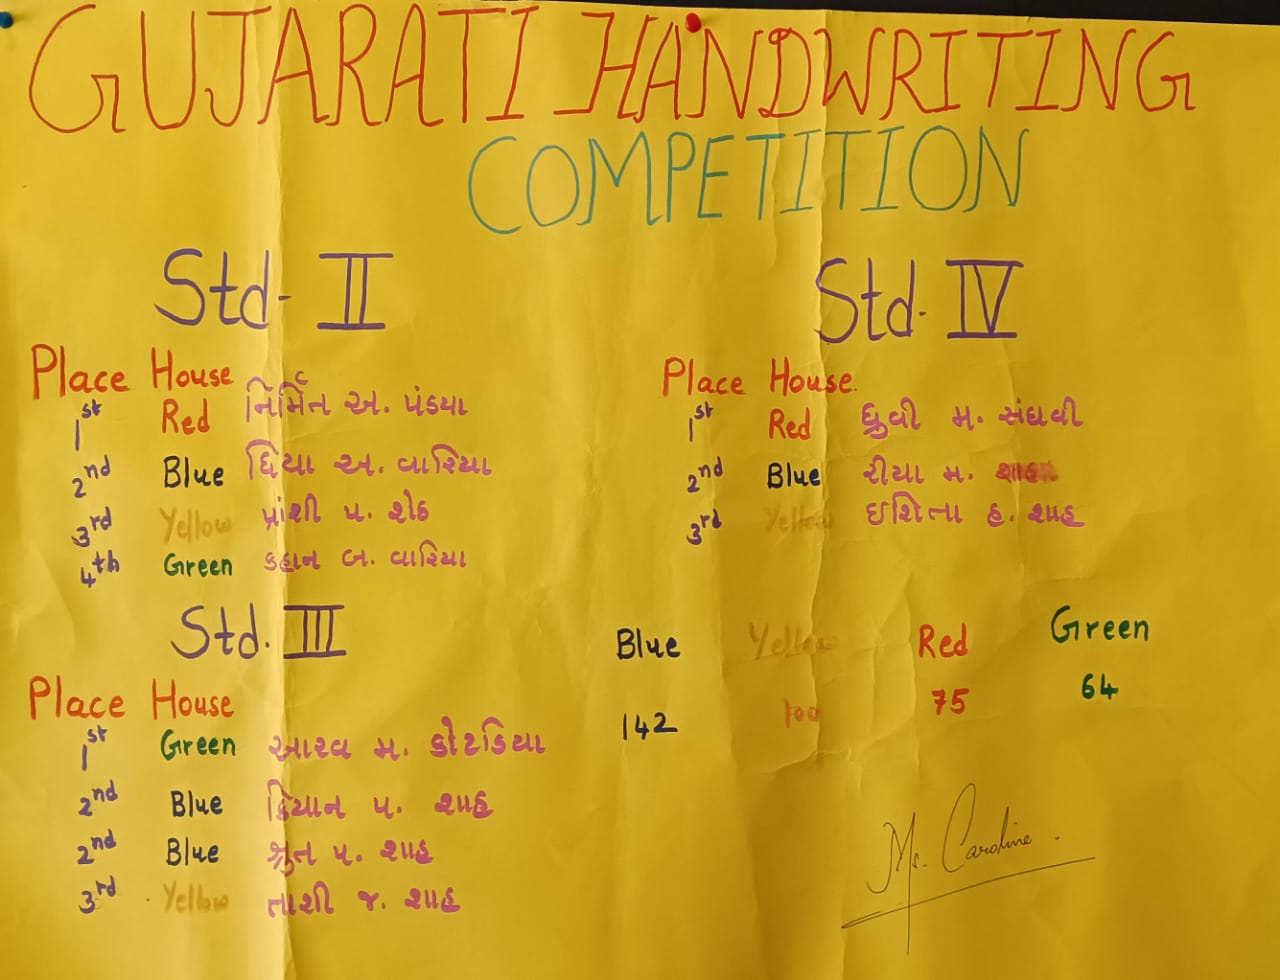 GUJARATI HANDWRITING
COMPETITION
Std- II
Place House
1st Red નિર્મિત અ. પંડયા
2nd Blue દ્વિયા અ. વારિયા
3rd Yellow પ્રાંશી પ. શેઠ
4th Green કહાન બ. વારિયા
Std. III
Place House
1st Green આરવ મ. કોટડિયા
2nd Blue ક્રિયાન પ. શાહ
2nd Blue શ્રુત પ. શાહ
3rd Yellow તાશી જ. શાહ
Std. IV
Place House
1st Red ધ્રુવી મ. સંઘવી
2nd Blue રીયા મ. શાહ
3rd Yellow ઇશિતા હ. શાહ
Blue Yellow Red Green
142 100 75 64
Ms. Caroline.